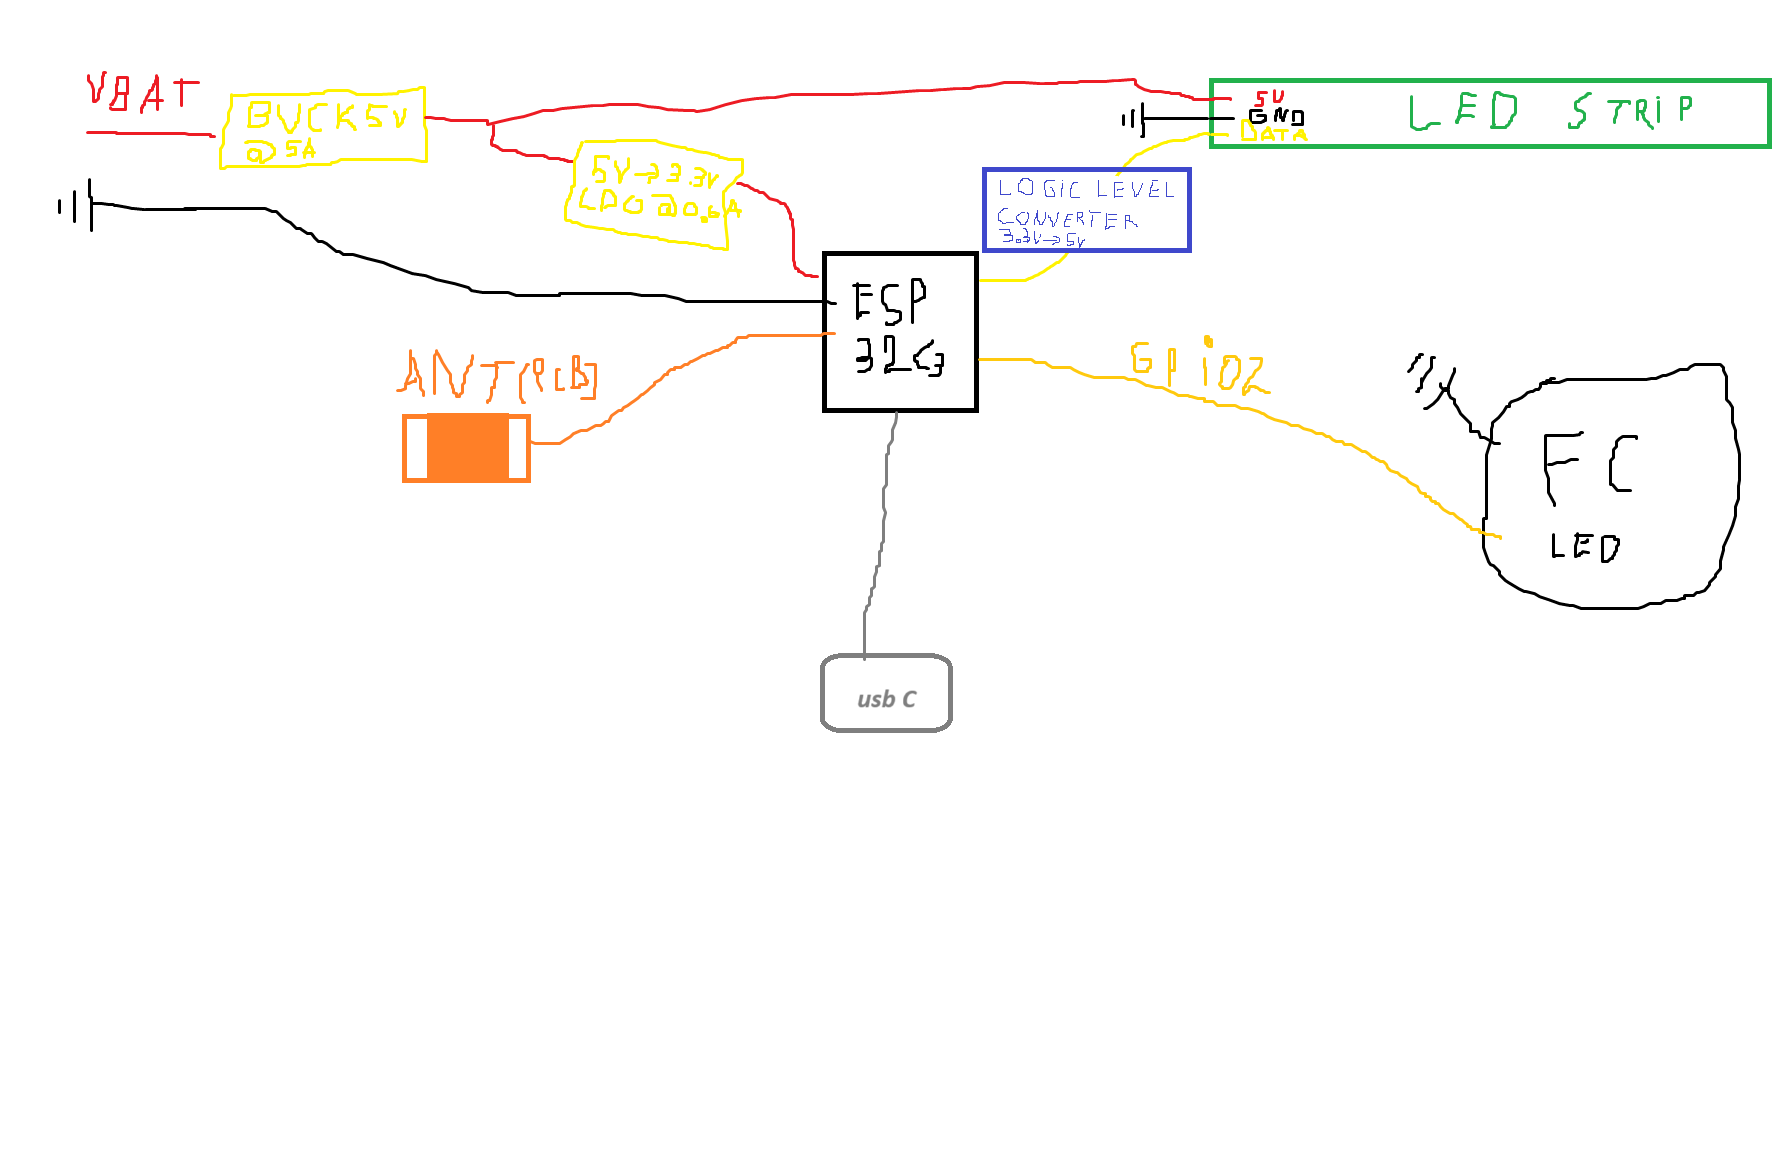 VBAT
BUCK 5V
@ 5A
5V→3.3V
LDO @0.6A
5V
GND
DATA
LED STRiP
LOGiC LEVEL
CONVERTER
3.3V→5V
ESP
32C3
ANT(PCB)
GPiO2
FC
LED
usb C